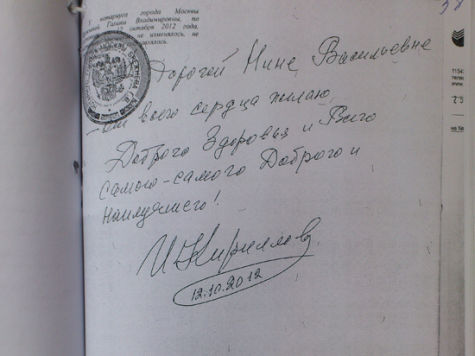 нотариуса города Москвы
Галины Владимировны, по
октября 2012 года,
не изменялось, не
Дорогой Нине Васильевне
от всего сердца желаю
Доброго Здоровья и Всего
самого-самого Доброго и
наилучшего!
И Кириллова
12.10.2012
1154